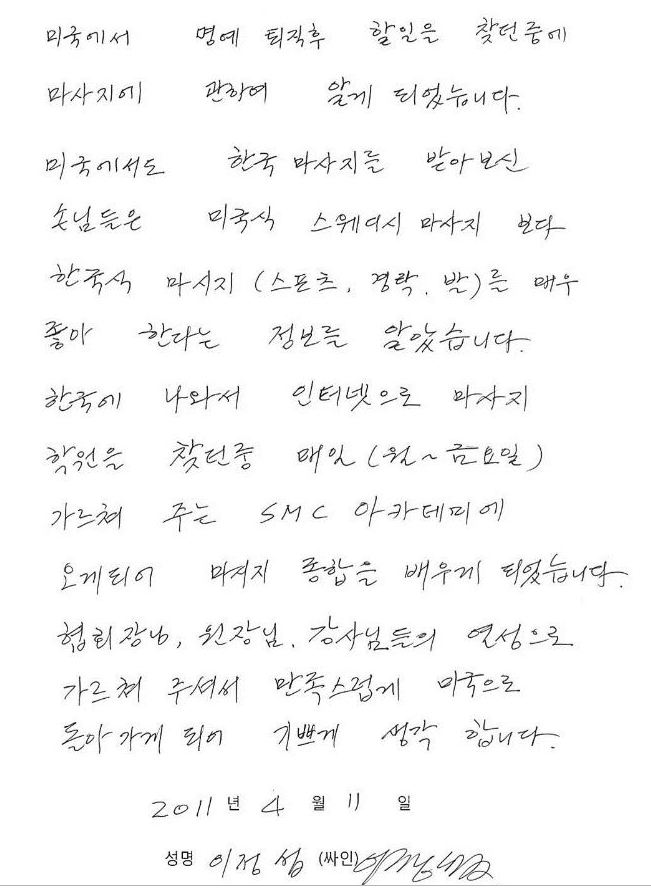 미국에서 명예 퇴직후 할일을 찾던중에
마사지에 관하여 알게 되었습니다.
미국에서도 한국 마사지를 받아보신
손님들은 미국식 스웨디시 마사지 보다
한국식 마사지 (스포츠, 경락, 발)를 매우
좋아 한다는 정보를 알았습니다.
한국에 나와서 인터넷으로 마사지
학원을 찾던중 매일 (월~금요일)
가르쳐 주는 SMC 아카데미에
오게되어 마사지 종합을 배우게 되었습니다.
협회장님, 원장님, 강사님들의 열성으로
가르쳐 주셔서 만족스럽게 미국으로
돌아가게 되어 기쁘게 생각 합니다.
2011 년 4 월 11 일
성명 이정섭 (싸인)